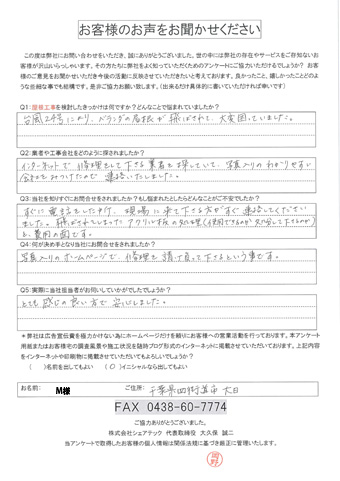 お客様のお声をお聞かせください
この度は弊社にお問い合わせをいただき、誠にありがとうございました。世の中には弊社の存在やサービスをご存知ないお
客様が沢山いらっしゃいます。その方たちに弊社をよく知っていただくためのアンケートにご協力いただけるでしょうか？お客
様のご意見をお聞かせいただき今後の活動に反映させていただきたいと考えております。良かったこと、嬉しかったことどのよ
うな些細な事でも結構です、是非ご協力お願い致します。（出来るだけ具体的に書いていただければ幸いです）
Q1:屋根工事を検討したきっかけは何ですか？どんなことで悩まれていましたか？
台風24号により、ベランダの屋根が飛ばされて、大変困っていました。
Q2:業者や工事会社をどのように探されましたか？
インターネットで修理をして下さる業者を探していて、写真入りのわかりやすい
会社をみつけたので連絡いたしました。
Q3:当社を知りすぐにお問合せをされましたか？もし悩まれたとしたらどんなことがご不安でしたか？
すぐに電話をしたけど、現場に来て下さる方がすぐ連絡してください
ました。飛ばされてしまったアクリル板の処理(使用できるのか処分して下さるのか)
と、費用の面です。
Q4:何が決め手となり当社にお問合せをされましたか？
写真入りのホームページで、修理を請け負って下さるという事です。
Q5:実際に当社担当者がお伺いしていかがでしたでしょうか？
とても感じの良い方で安心しました。
＊弊社は広告宣伝費を極力かけない為にホームページだけを頼りにお客様への営業活動を行っております。本アンケート
用紙またはお客様宅の調査風景や施工状況を随時ブログ形式でインターネットに掲載させていただいております。上記内容
をインターネットや印刷物に掲載させていただいてもよろしいでしょうか？
（　）名前を出してもよい　（○）イニシャルなら出してもよい
お名前： M様 ご住所： 千葉県四街道市大日
FAX 0438-60-7774
ご協力ありがとうございました。
株式会社シェアテック 代表取締役 大久保 誠二
当アンケートで取得したお客様の個人情報は関係法規に基づき厳正に管理いたします。